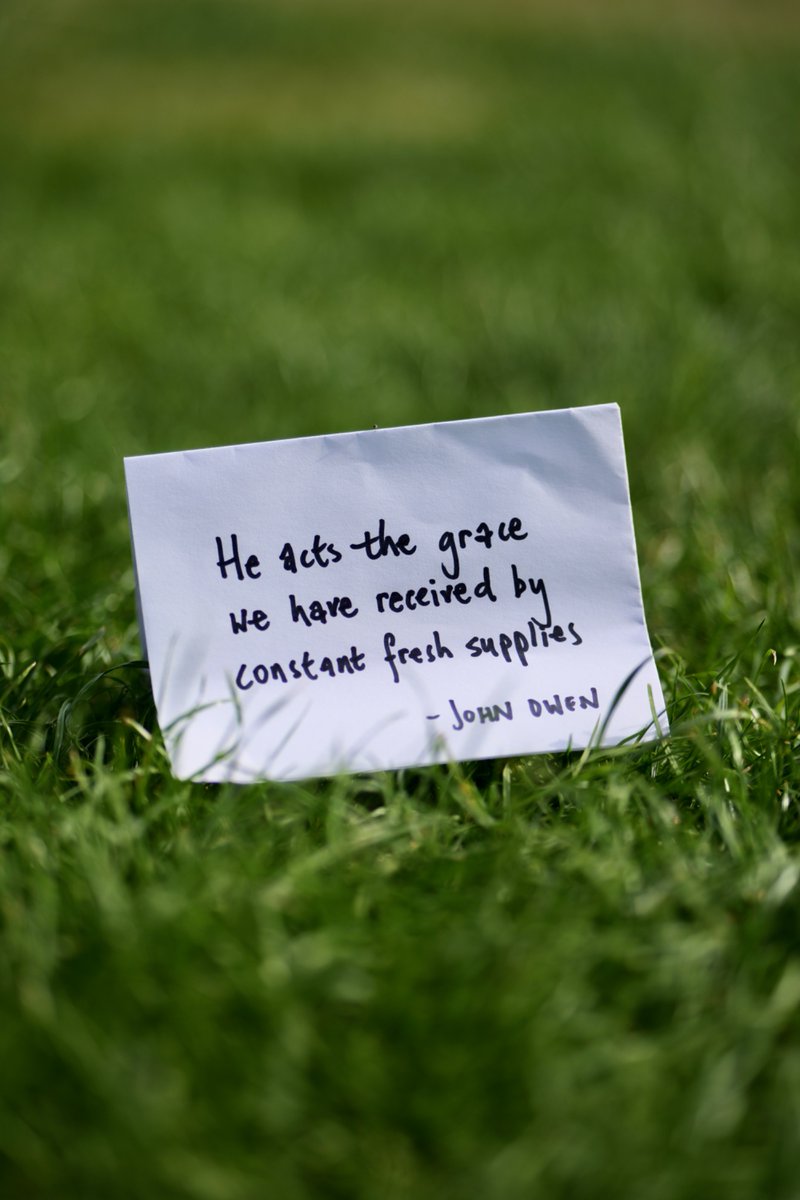 He acts the grace
we have received by
constant fresh supplies
- JOHN OWEN